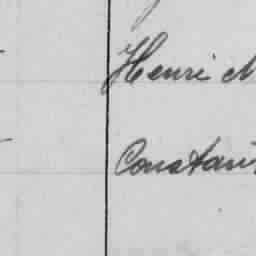 Henri M
Constan